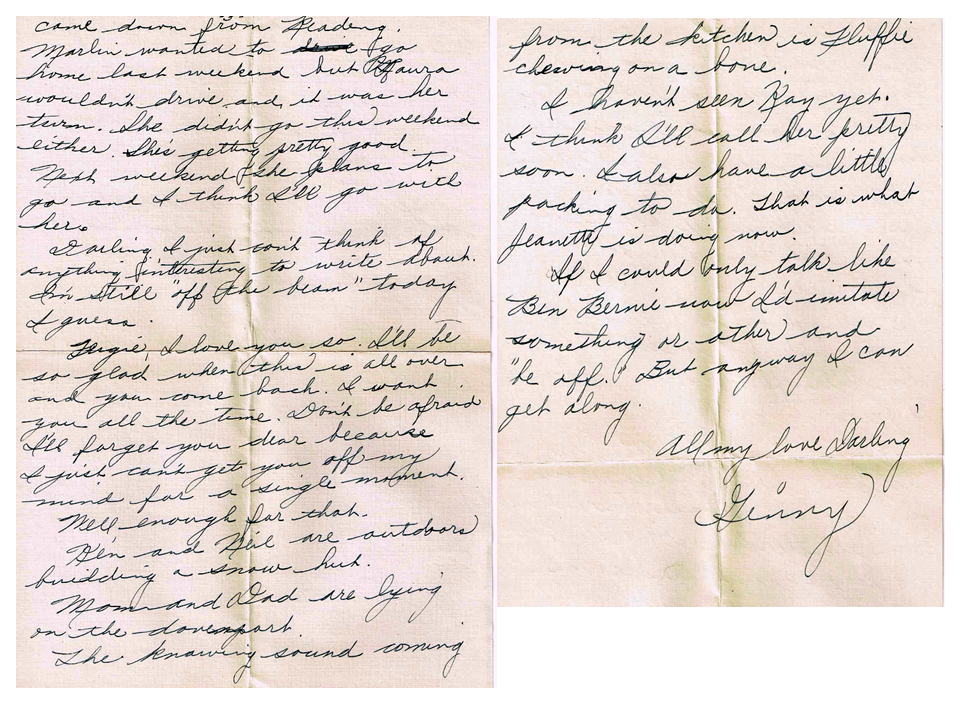 came down from Reading.
Marlin wanted to drive go
home last weekend but Maura
wouldn't drive and it was her
turn. She didn't go this weekend
either. She's getting pretty good.
Next weekend she plans to
go and I think I'll go with
her.
Darling I just can't think of
anything interesting to write about.
I'm still "off the beam" today
I guess.
I love you so. I'll be
so glad when this is all over
and you come back. I want
you all the time. Don't be afraid
I'll forget you dear because
I just can't get you off my
mind for a single moment.
Well enough for that.
Ken and Neil are outdoors
building a snow hut.
Mom and Dad are lying
on the davenport.
The knawing sound coming
from the kitchen is Fluffie
chewing on a bone.
I haven't seen Kay yet.
I think I'll call her pretty
soon. I also have a little
packing to do. That is what
Jeanette is doing now.
If I could only talk like
Ben Bernie now I'd imitate
something or other and
"be off." But anyway I can
get along.
All my love Darling
Ginny